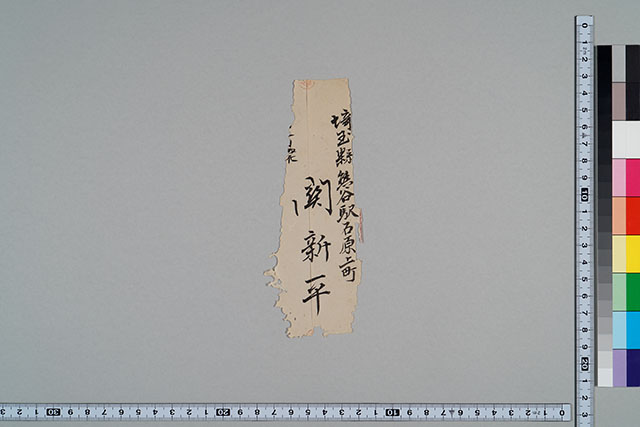 埼玉縣熊谷駅石原上町
関新平